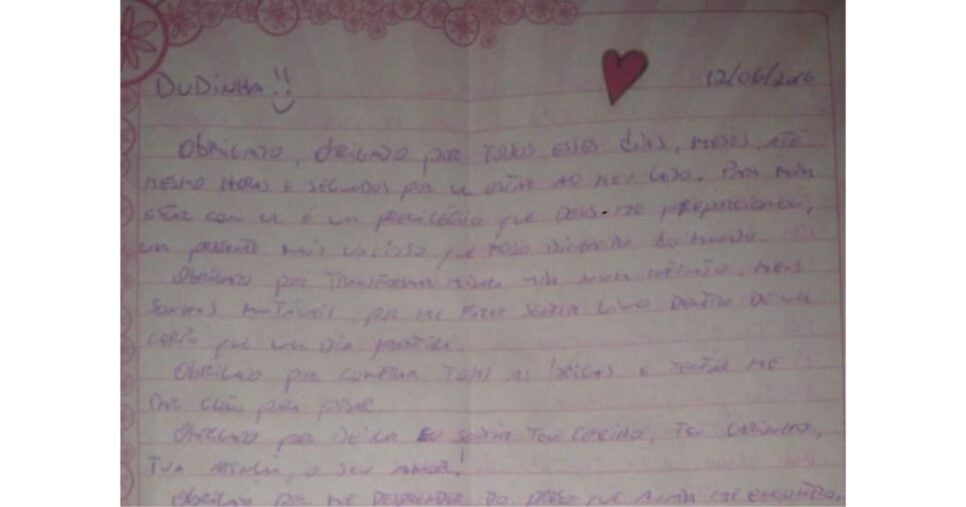 DUDINHA!!
12/06/2016
OBRIGADO, OBRIGADO POR TODOS ESSES DIAS, MESES, ATÉ
MESMO HORAS E SEGUNDOS POR AO MEU LADO. PARA MIM
ESTAR COM É UM PRIVILÉGIO QUE DEUS ME PROPORCIONOU,
UM PRESENTE MAIS VALIOSO QUE TODO DINHEIRO DO MUNDO.
OBRIGADO POR TRANSFORMAR MINHA VIDA NUM, MEUS
SONHOS, POR ME FAZER SENTIR VIVO DENTRO DE UM
CORPO QUE UM DIA
OBRIGADO POR TODAS AS E TENTAR ME
DAR CHÃO PARA PISAR.
OBRIGADO POR DEIXAR EU SENTIR TEU CHEIRO, TEU CARINHO,
TUA, O SEU AMOR!
OBRIGADO POR ME DESPRENDER DO QUE ME